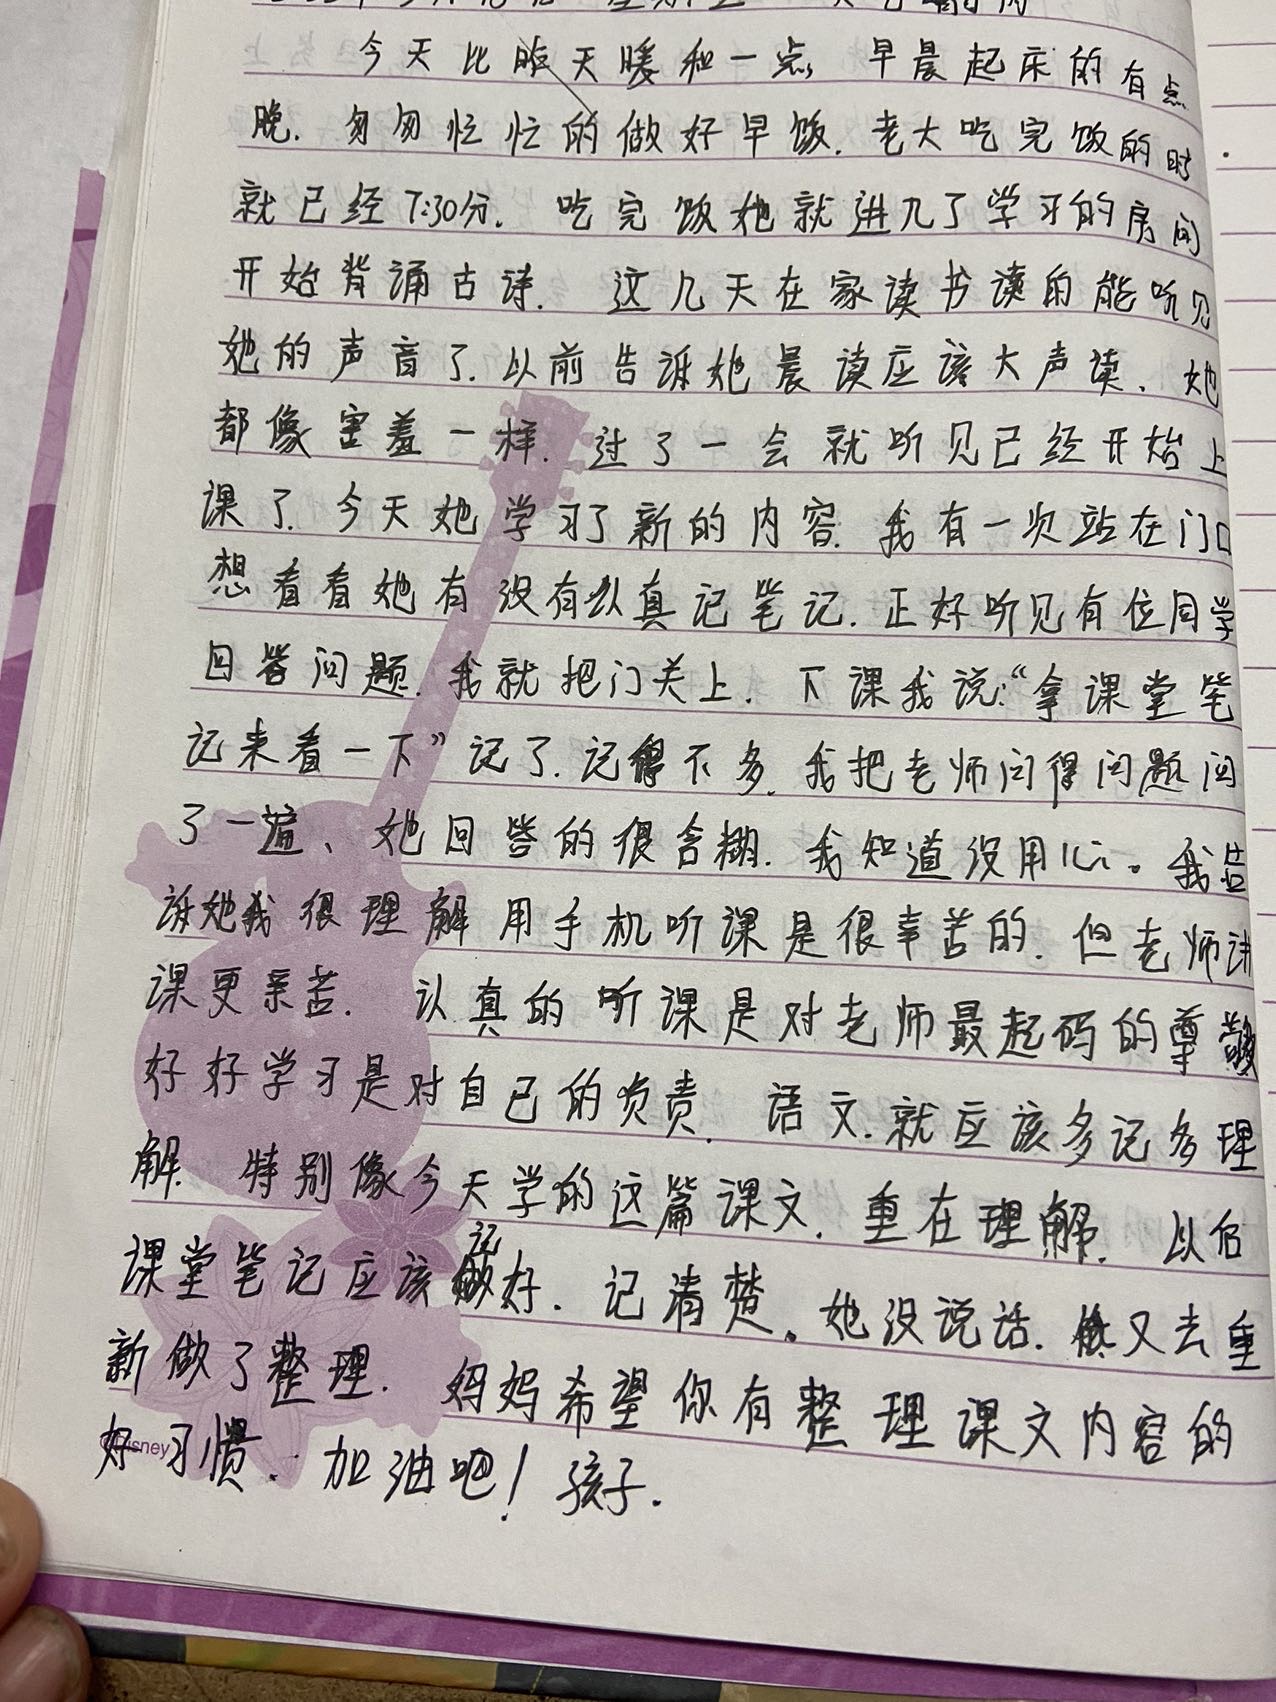 今天比昨天暖和一点,早晨起床的有点
晚.匆匆忙忙的做好早饭.老大吃完饭的时
就已经7:30分.吃完饭她就进几了学习的房间
开始背诵古诗.这几天在家读书读的能听见
她的声音了.以前告诉她晨读应该大声读、她
都像害羞一样.过了一会就听见已经开始上
课了.今天她学习了新的内容.我有一次站在门口
想看看她有没有认真记笔记.正好听见有位同学
回答问题.我就把门关上.下课我说:“拿课堂笔
记来看一下”记了.记得不多.我把老师问得问题问
了一遍、她回答的很含糊.我知道没用心。我告
诉她我很理解用手机听课是很幸苦的.但老师讲
课更亲苦.认真的听课是对老师最起码的尊敬
好好学习是对自己的负责.语文.就应该多记多理
解.特别像今天学的这篇课文.重在理解.以后
课堂笔记应该记好.记清楚。她没说话.又去重
新做了整理.妈妈希望你有整理课文内容的
好习惯.加油吧!孩子.
Disney